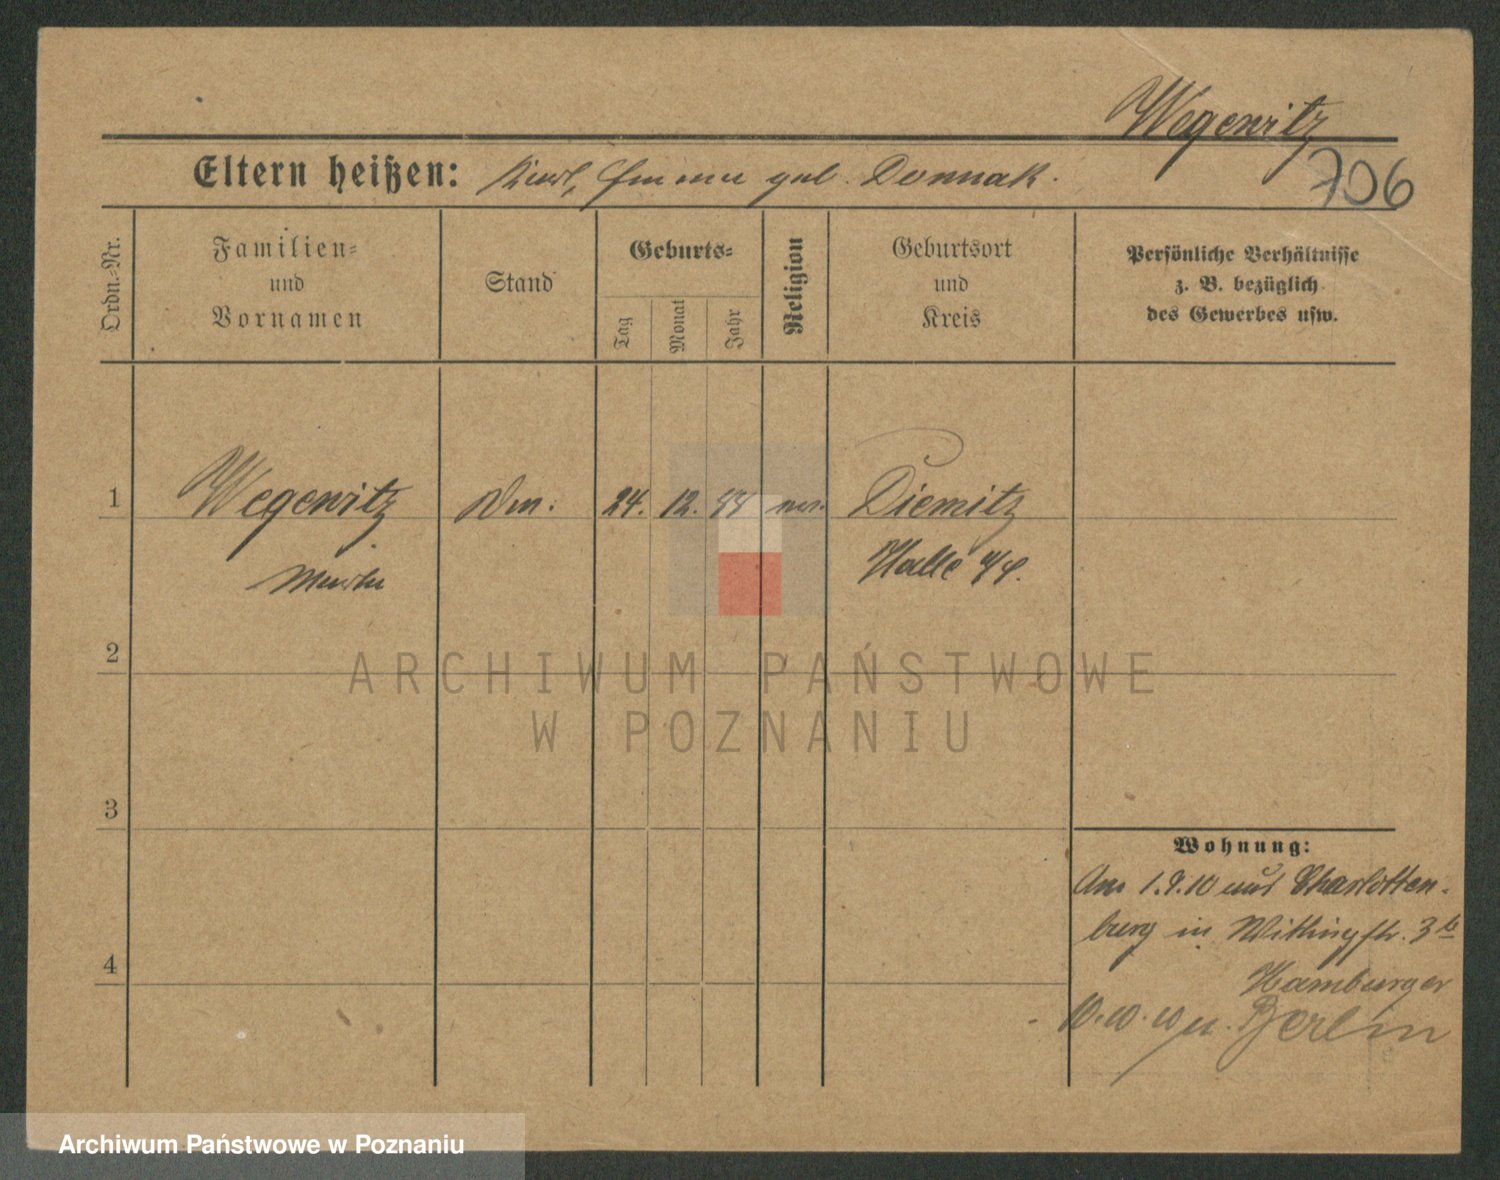 Wegewitz
706
Eltern heißen: Karl, Emma geb. Donnak.
Ordn.-Nr.
Familien-
und
Vornamen
Stand
Geburts-
Tag
Monat
Jahr
Religion
Geburtsort
und
Kreis
Persönliche Verhältnisse
z. B. bezüglich
des Gewerbes usw.
1 Wegewitz 24. 12. Diemitz
Halle a/S.
2
3
4
Wohnung:
Am 1.9.10 aus Charlotten-
burg in 3
Hamburger
10.10.10 n. Berlin
ARCHIWUM PAŃSTWOWE
W POZNANIU
Archiwum Państwowe w Poznaniu